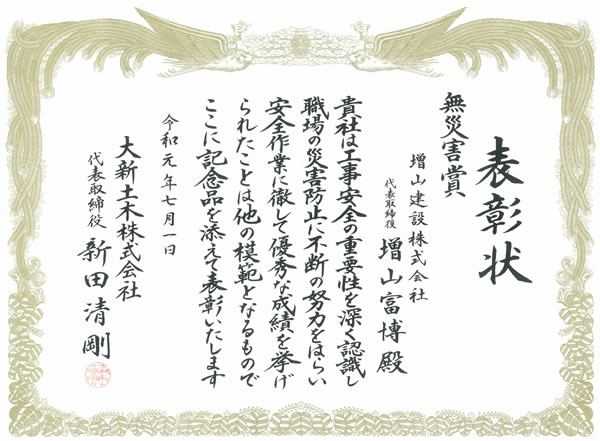 表彰状
無災害賞
増山建設株式会社
代表取締役 増山富博殿
貴社は工事安全の重要性を深く認識し
職場の災害防止に不断の努力をはらい
安全作業に徹して優秀な成績を挙げ
られたことは他の模範となるもので
ここに記念品を添えて表彰いたします
令和元年七月一日
大新土木株式会社
代表取締役 新田清剛